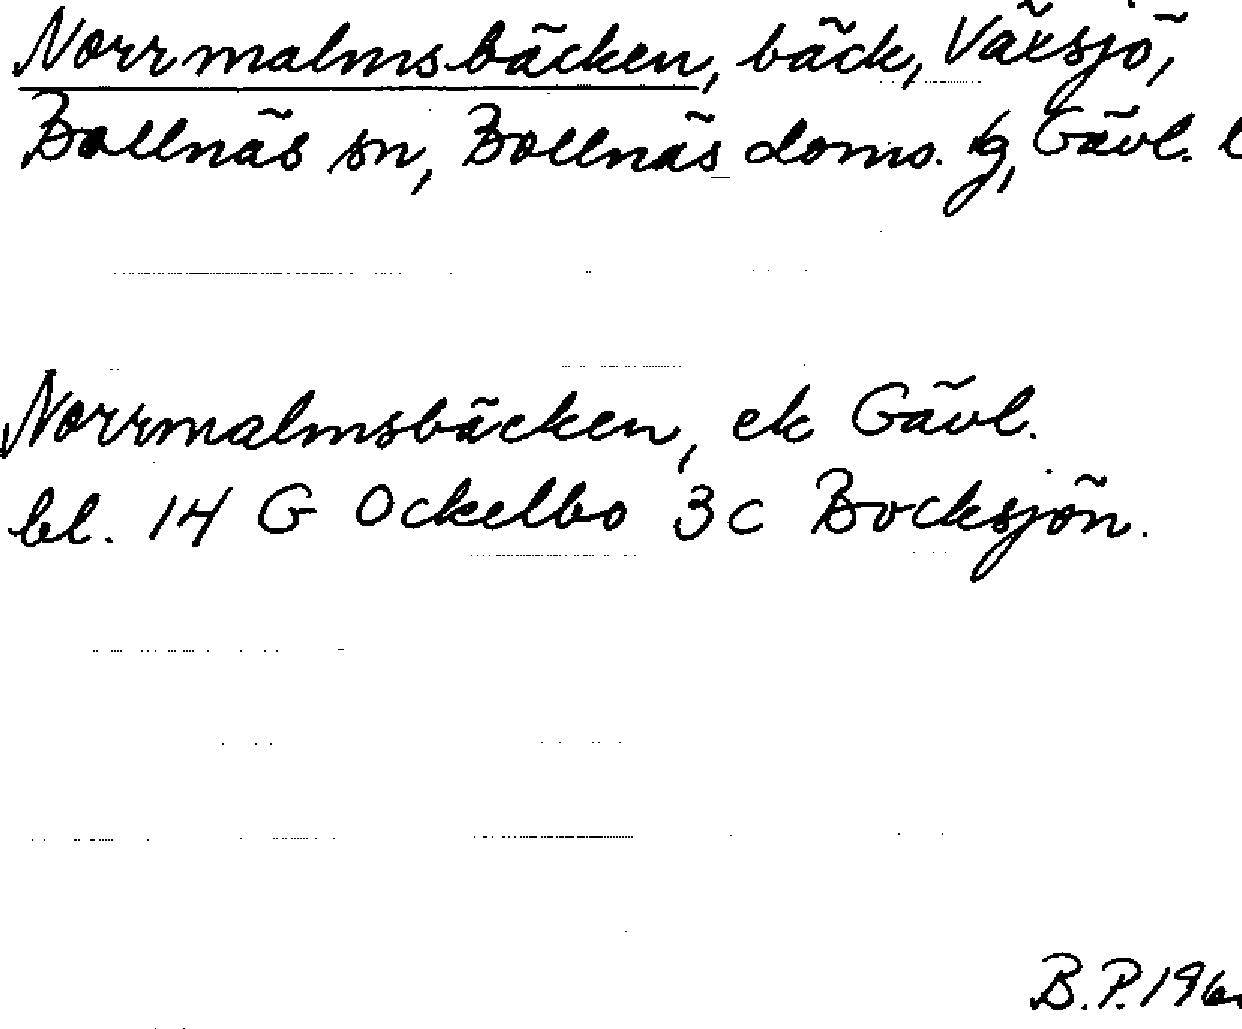 Norrmalmsbäcken, bäck, Växsjö,
Bollnäs sn, Bollnäs doms. g, Gävl. l
Norrmalmsbäcken, ek Gävl.
bl. 14 G Ockelbo 3c Bocksjön.
B.P.196